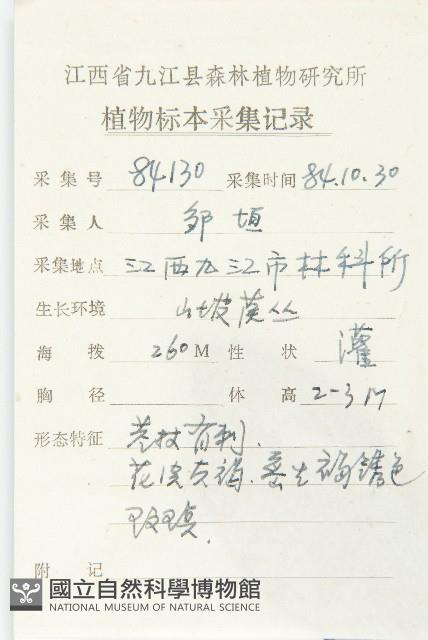 江西省九江县森林植物研究所
植物标本采集记录
采集号 84130 采集时间 84.10.30
采集人 邹垣
采集地点 江西九江市林科所
生长环境 山坡莫丛
海拨 260M 性状 灌
胸径 体高 2-3M
形态特征 老枝有刺.
花淡灰褐.密生
附记
國立自然科學博物館
NATIONAL MUSEUM OF NATURAL SCIENCE